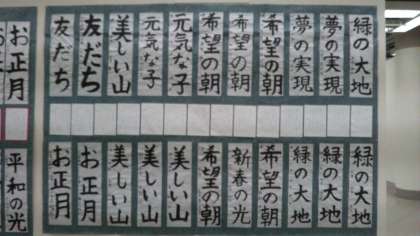 緑の大地
夢の実現
夢の実現
希望の朝
希望の朝
希望の朝
元気な子
元気な子
美しい山
友だち
友だち
お正月
緑の大地
緑の大地
緑の大地
希望の朝
新春の光
希望の朝
美しい山
美しい山
美しい山
お正月
お正月
平和の光